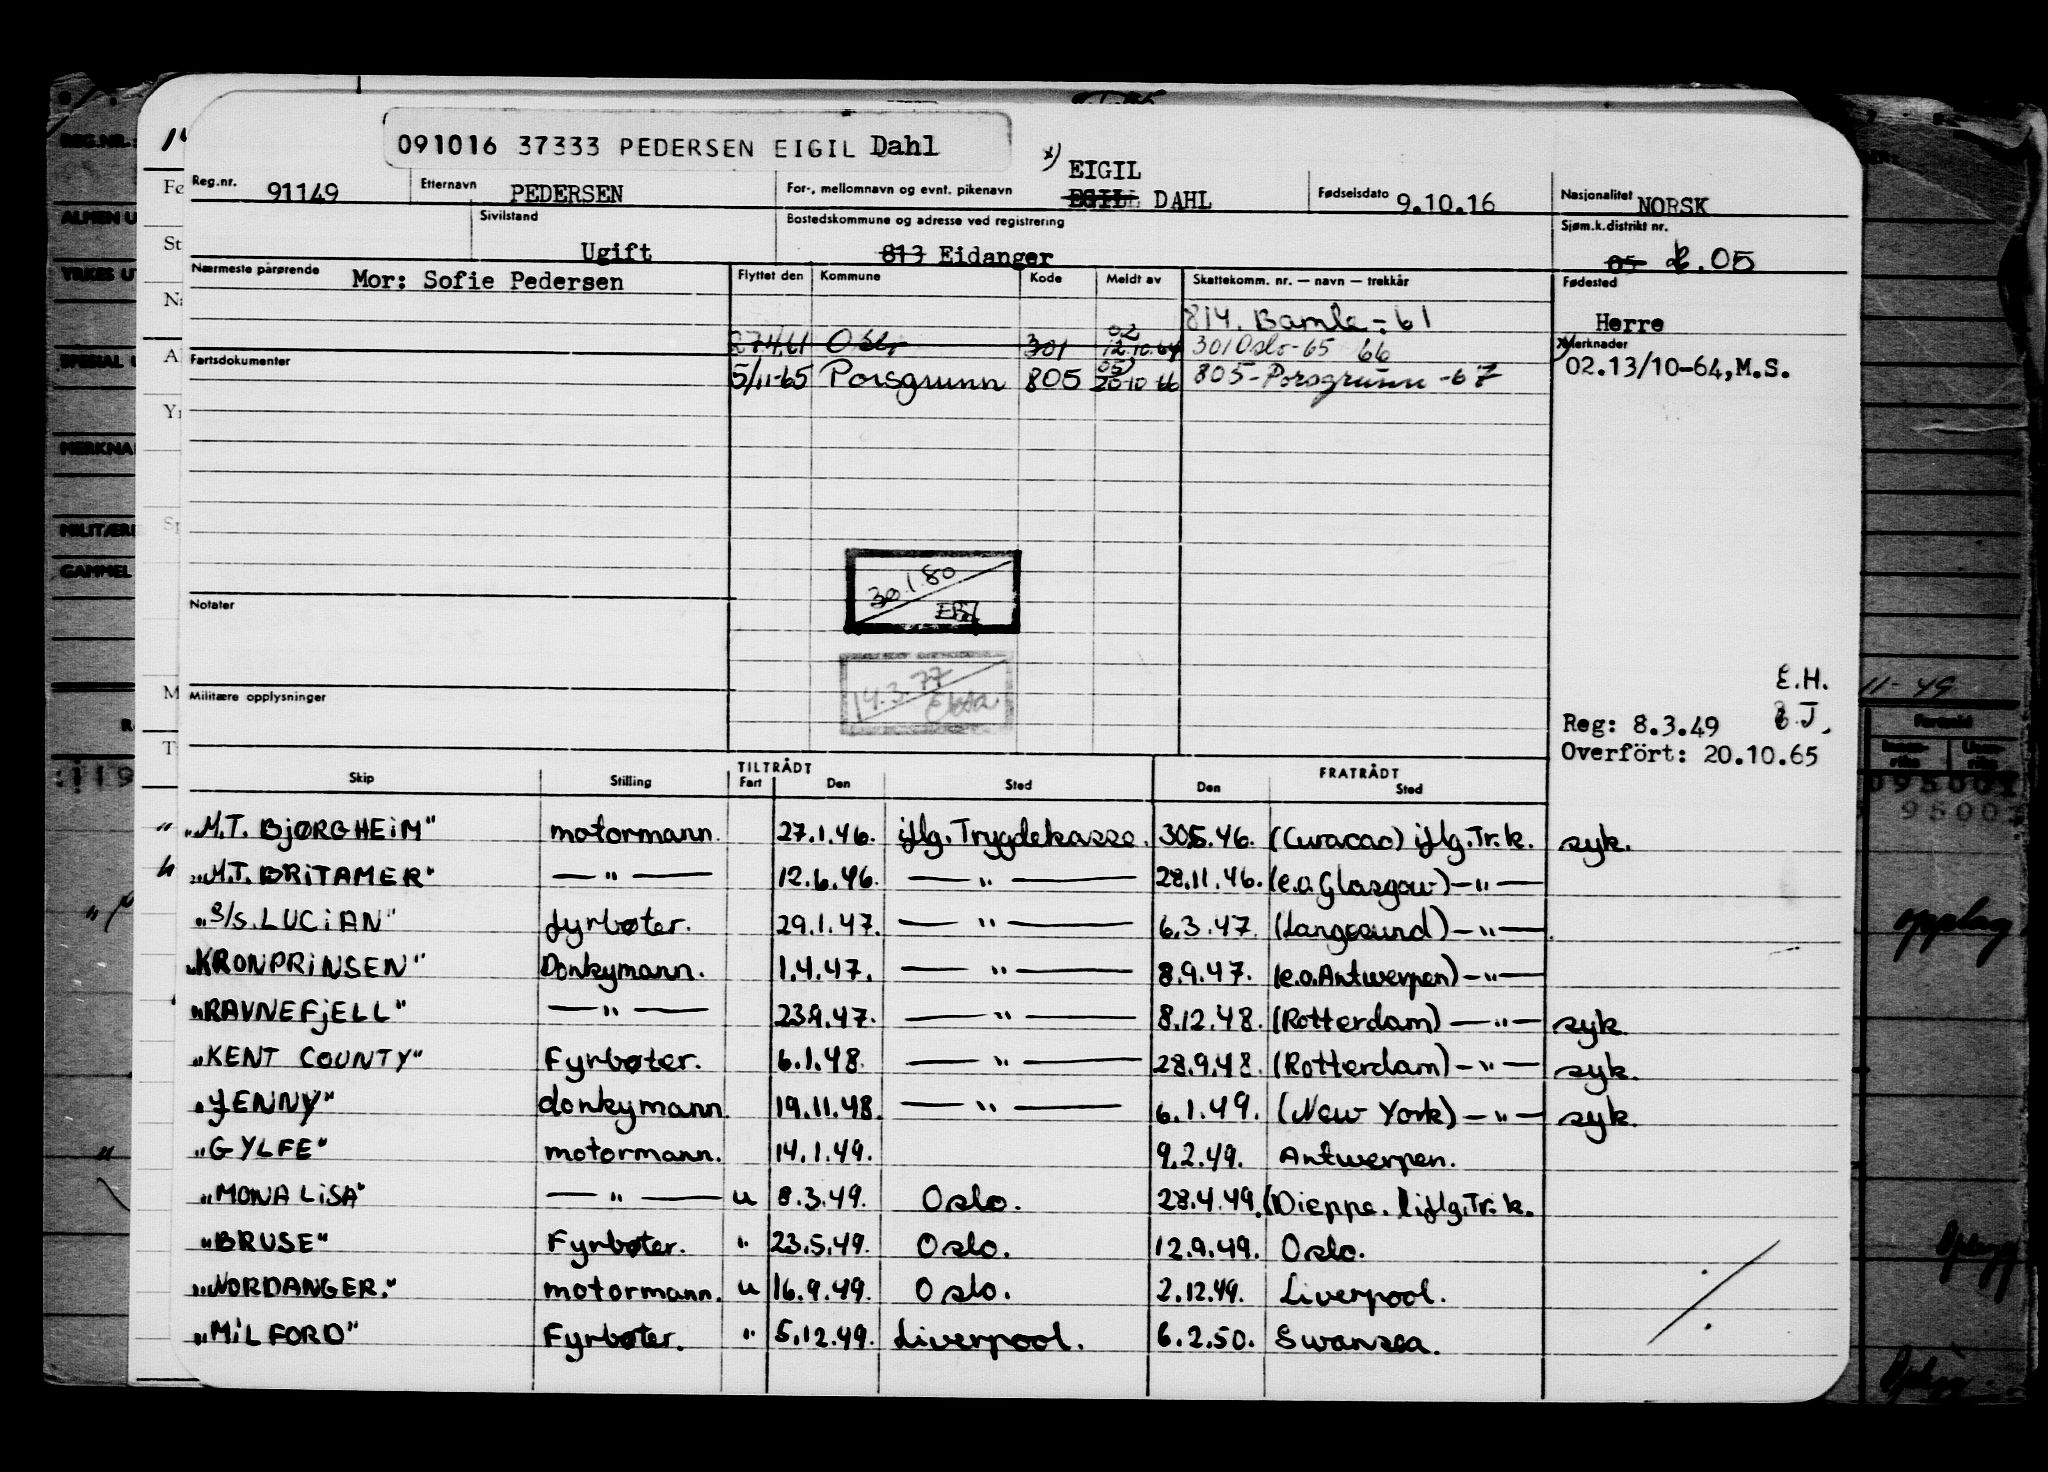 091016 37333 PEDERSEN EIGIL Dahl
x) EIGIL
Reg.nr. 91149 Etternavn PEDERSEN For-, mellomnavn og evnt. pikenavn EGIL DAHL Fødselsdato 9.10.16 Nasjonalitet NORSK
Sivilstand Ugift Bostedskommune og adresse ved registrering 813 Eidanger Sjøm.k.distrikt nr. 05 05
Nærmeste pårørende Mor: Sofie Pedersen Flyttet den Kommune Kode Meldt av Skattekomm. nr. — navn — trekkår Fødested
814. Bamle - 61 Herre
Oslo 301 02 12.10.64 301 Oslo-65 66 x) Merknader
Fartsdokumenter 5/11-65 Porsgrunn 805 05 20.10.66 805-Porsgrunn -67 02.13/10-64,M.S.
30.1.80
Notater
14.3.77
Militære opplysninger
E.H.
Reg: 8.3.49
Overfört: 20.10.65
Skip Stilling TILTRÅDT Fart Den Sted FRATRÅDT Den Sted
„M.T. BJØRGHEIM" motormann. 27.1.46. iflg. Trygdekasse. 30.5.46. (Curacao) iflg.Tr.k. syk.
„M.T. BRITAMER" — " — 12.6.46. — " — 28.11.46. (e.a. Glasgow) — " —
„S/S. LUCIAN" fyrbøter. 29.1.47. — " — 6.3.47. (Langesund) — " —
„KRONPRINSEN" Donkymann. 1.4.47. — " — 8.9.47. (e.a. Antwerpen) — " —
„RAVNEFJELL" — " — 23.9.47. — " — 8.12.48. (Rotterdam) — " — syk.
„KENT COUNTY" Fyrbøter. 6.1.48. — " — 28.9.48. (Rotterdam) — " — syk.
„JENNY" donkymann. 19.11.48. — " — 6.1.49. (New York) — " — syk.
„GYLFE" motormann. 14.1.49. 9.2.49. Antwerpen.
„MONA LISA" — " — u 8.3.49. Oslo. 28.4.49. (Dieppe.) iflg.Tr.k.
„BRUSE" Fyrbøter. " 23.5.49. Oslo. 12.9.49. Oslo.
„NORDANGER." motormann. u 16.9.49. Oslo. 2.12.49. Liverpool.
„MILFORD" Fyrbøter. " 5.12.49. Liverpool. 6.2.50. Swansea.